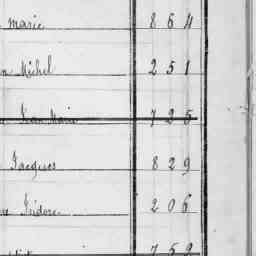 marie 864
Michel 251
Jean Marie 725
Jacques 829
Isidore 206
752